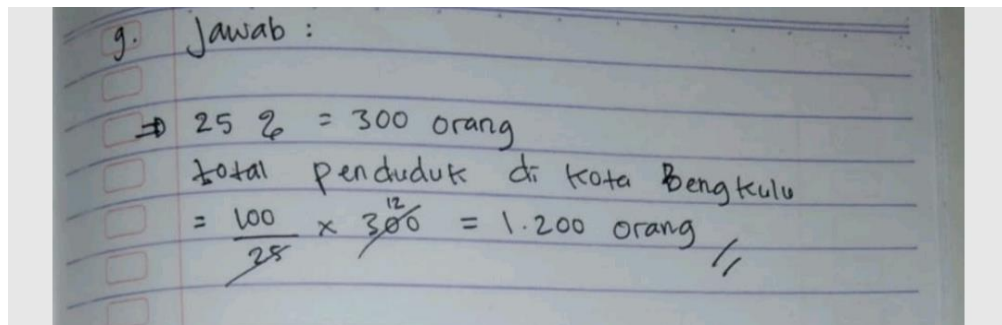 9. Jawab :
⇒ 25 % = 300 orang
total penduduk di kota Bengkulu
= 100/25 × 300 12 = 1.200 orang //